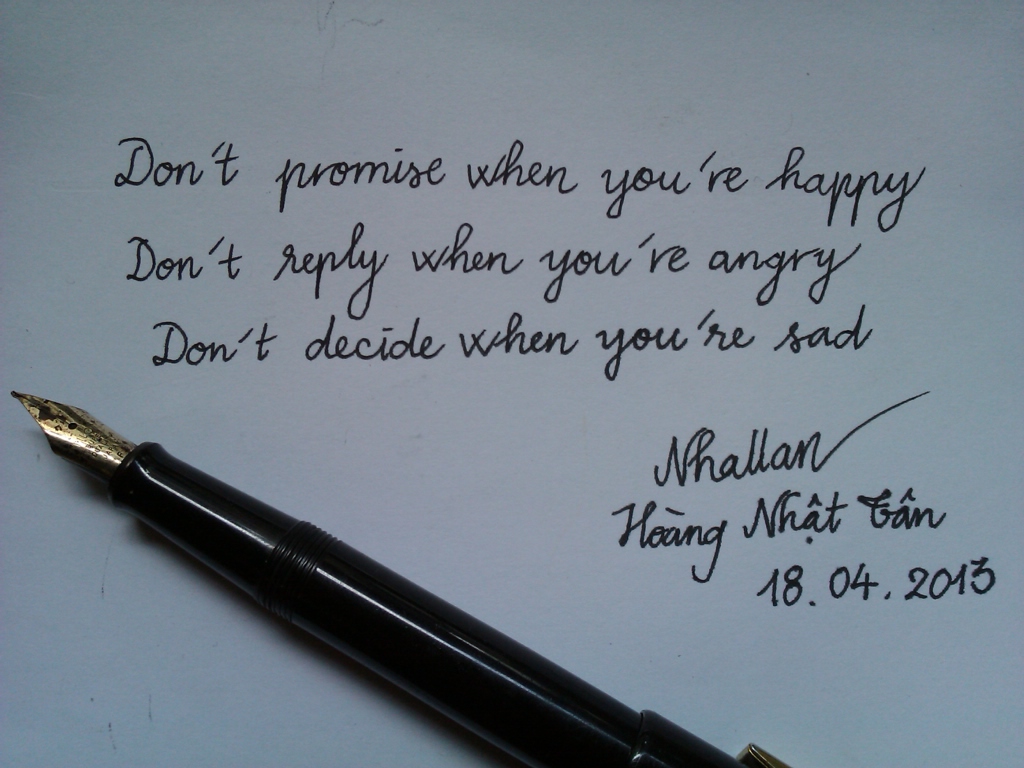 Don't promise when you're happy
Don't reply when you're angry
Don't decide when you're sad
Nhallan
Hoàng Nhật Tân
18.04.2013